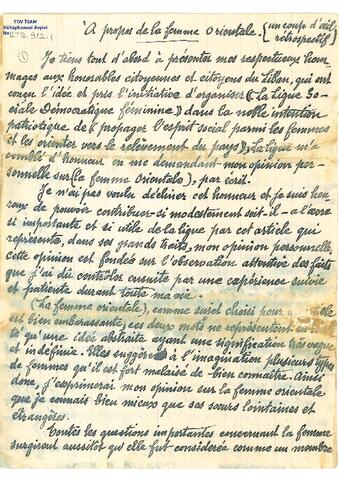 TDV İSAM
Kütüphanesi Arşivi
No 2TB.912.1
A propos de la femme Orientale. (un coup d'œil
rétrospectif)
1
Je tiens tout d'abord à présenter mes respectueux hom-
mages aux honorables citoyennes et citoyens du Liban, qui ont
conçu l'idée et pris l'initiative d'organiser «La Ligue So-
ciale Démocratique féminine» dans la noble intention
patriotique de (propager l'esprit social parmi les femmes
et les orienter vers le relèvement du pays). La ligue m'a
comblé d'honneur en me demandant mon opinion per-
sonnelle sur (la femme orientale), par écrit.
Je n'ai pas voulu décliner cet honneur et je suis heu-
reux de pouvoir contribuer - si modestement soit-il - à l'œuvre
si importante et si utile de la ligue par cet article qui
représente, dans ses grands traits, mon opinion personnelle;
cette opinion est fondée sur l'observation attentive des faits
que j'ai dû contrôler ensuite par une expérience suivie
et patiente durant toute ma vie.
(La femme orientale), comme sujet choisi pour
est bien embarassante, ces deux mots ne représentent en
té qu'une idée abstraite ayant une signification très vague
et indéfinie. Elles suggèrent à l'imagination plusieurs types
de femmes qu'il est fort malaisé de bien connaître. Ainsi
donc, j'exprimerai mon opinion sur la femme orientale
que je connais bien mieux que ses sœurs lointaines et
étrangères.
Toutes les questions importantes concernant la femme
surgirent aussitôt qu'elle fut considérée comme un membre